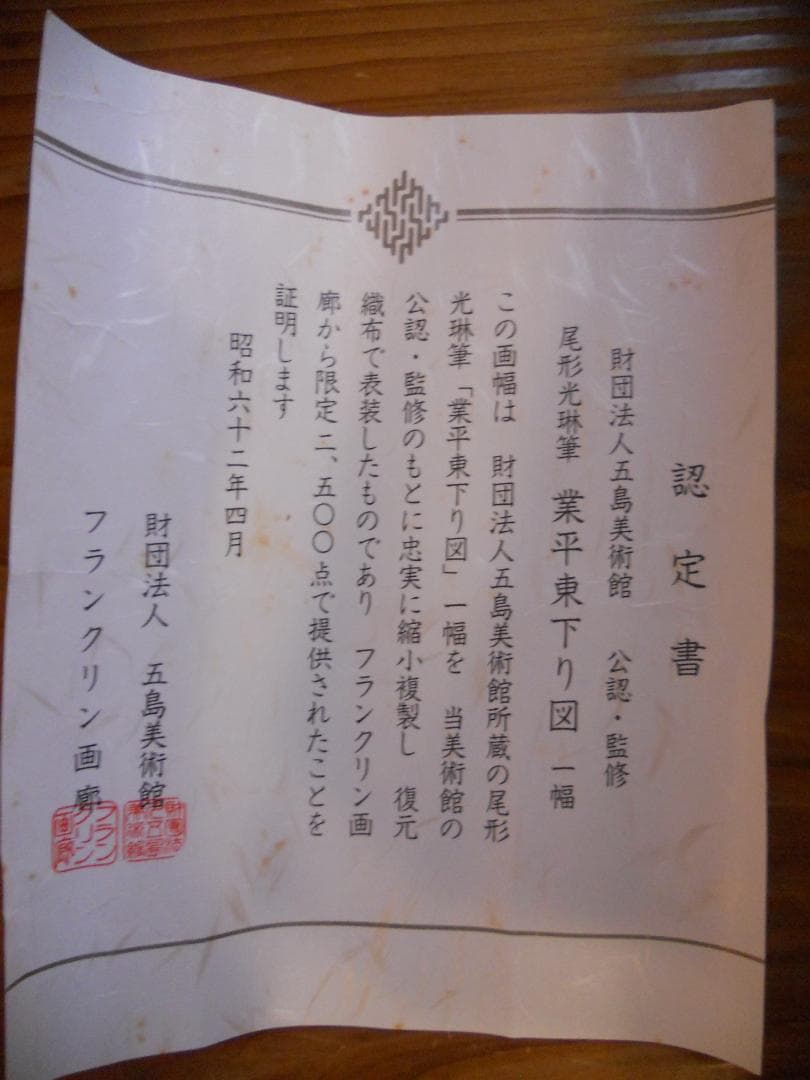 認定書
財団法人五島美術館　公認・監修
尾形光琳筆　業平東下り図　一幅
この画幅は　財団法人五島美術館所蔵の尾形
光琳筆「業平東下り図」一幅を　当美術館の
公認・監修のもとに忠実に縮小複製し　復元
織布で表装したものであり　フランクリン画
廊から限定二、五〇〇点で提供されたことを
証明します
昭和六十二年四月
財団法人　五島美術館
フランクリン画廊
フラン
クリン
画廊